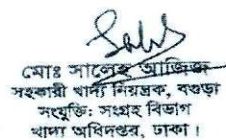 মোঃ সালেহ আজিজ
সহকারী খাদ্য নিয়ন্ত্রক, বগুড়া
সংযুক্তি: সংগ্রহ বিভাগ
খাদ্য অধিদপ্তর, ঢাকা।